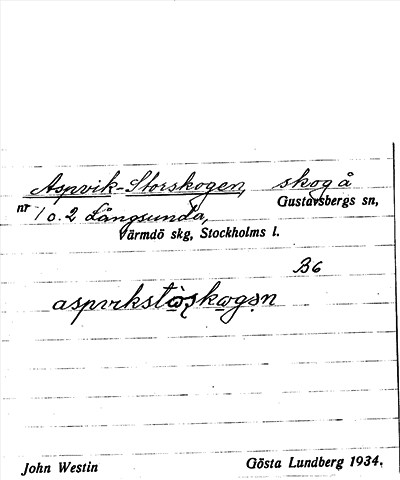 Aspvik-Storskogen, skog å
nr 1 o. 2 Långsunda, Gustavsbergs sn,
Värmdö skg, Stockholms l.
B6
aspvikstòskogən
John Westin Gösta Lundberg 1934.